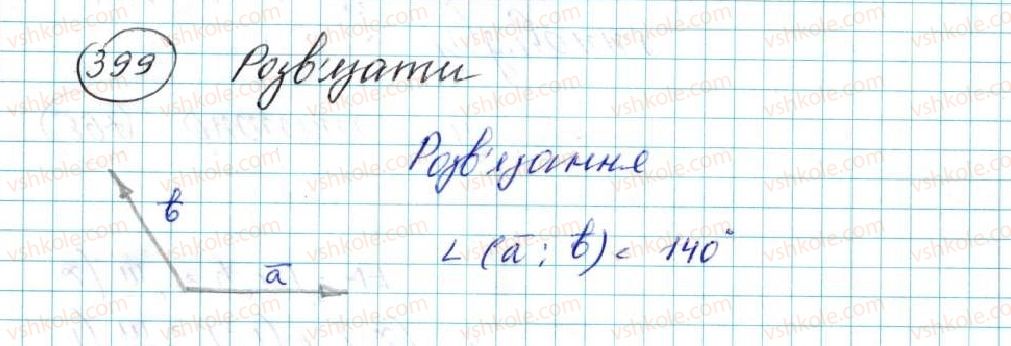 399 Розв'язати
Розв'язання
b̄
ā
∠(ā; b̄) = 140°
vshkole.com